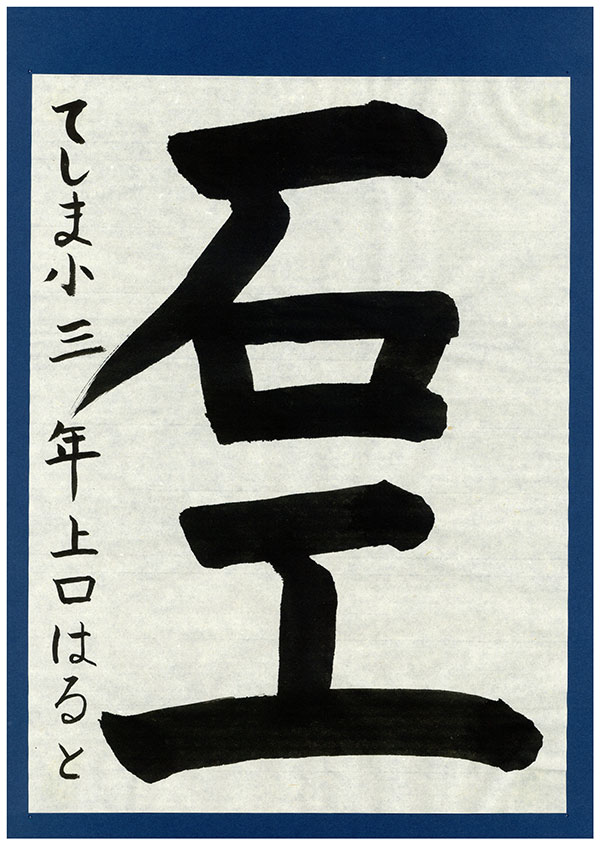 石工
てしま小三年上口はると